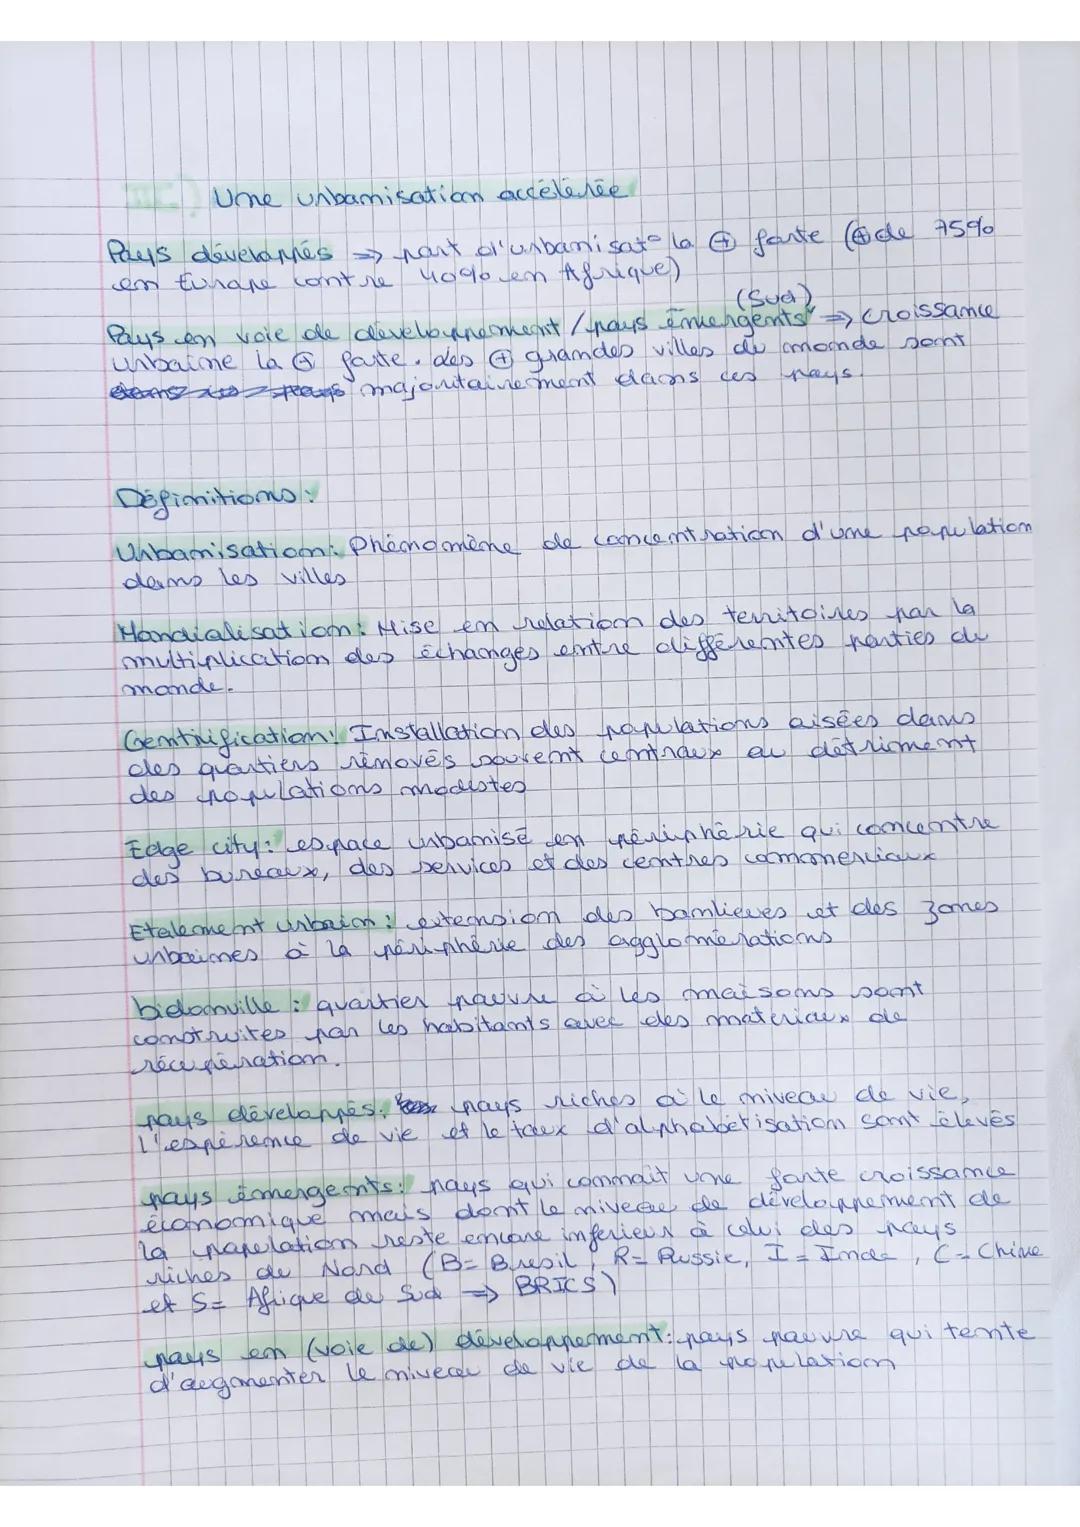 Une urbanisation accélérée
Pays développés => part d'urbanisat° la ⊕ forte (⊕ de 75%
en Europe contre 40% en Afrique)
(Sud)
Pays en voie de developpement / pays émergents => croissance
urbaine la ⊕ forte. des ⊕ grandes villes du monde sont
majoritairement dans ces pays.
Définitions :
Urbanisation : Phénomène de concentration d'une population
dans les villes
Mondialisation : Mise en relation des territoires par la
multiplication des échanges entre différentes parties du
monde.
Gentrification : Installation des populations aisées dans
des quartiers rénovés souvent centraux au détriment
des populations modestes
Edge city : espace urbanisé en périphérie qui concentre
des bureaux, des services et des centres commerciaux
Etalement urbain : extension des banlieues et des zones
urbaines à la périphérie des agglomérations
bidonville : quartier pauvre où les maisons sont
construites par les habitants avec des materiaux de
récupération.
pays développés : pays riches où le niveau de vie,
l'espérence de vie et le taux d'alphabétisation sont élevés
pays émergents : pays qui connait une forte croissance
économique mais dont le niveau de développement de
la population reste encore inferieur à celui des pays
riches du Nord (B= Bresil, R= Russie, I= Inde, C= Chine
et S= Afrique du Sud => BRICS)
pays en (voie de) développement : pays pauvre qui tente
d'augmenter le niveau de vie de la population